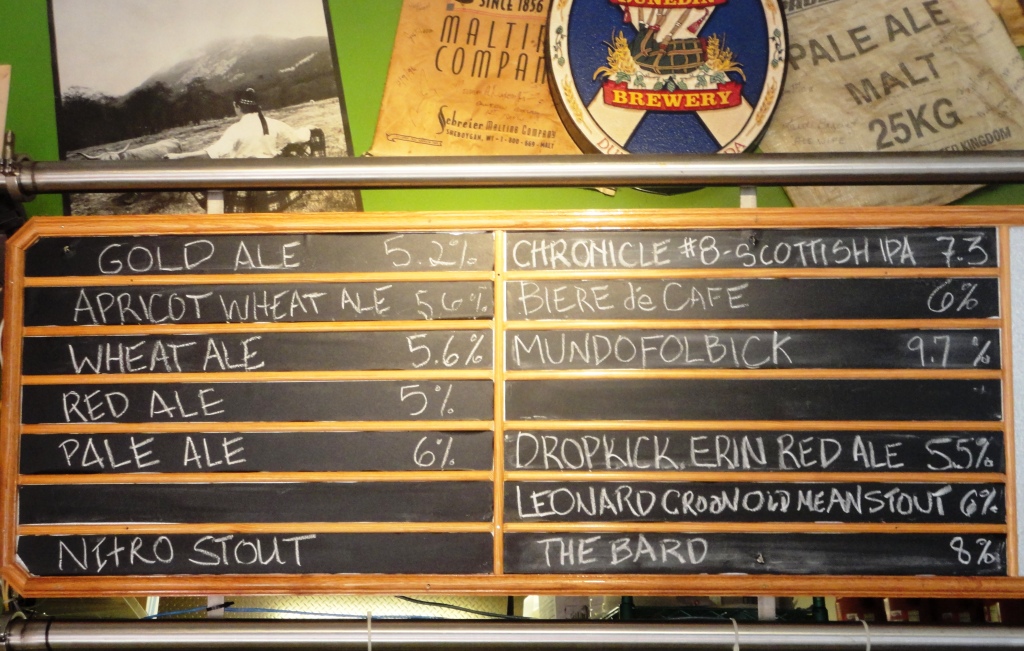 SINCE 1856
MALTING
COMPANY
Schreier MALTING COMPANY
SHEBOYGAN, WI • 1-800-669-MALT
DUNEDIN
BREWERY
PALE ALE
MALT
25KG
UNITED KINGDOM
GOLD ALE 5.2%
APRICOT WHEAT ALE 5.6%
WHEAT ALE 5.6%
RED ALE 5%
PALE ALE 6%
NITRO STOUT
CHRONICLE #8-SCOTTISH IPA 7.3
BIERE de CAFE 6%
MUNDOFOLBICK 9.7 %
DROPKICK ERIN RED ALE 5.5%
LEONARD CROON OLD MEAN STOUT 6%
THE BARD 8%